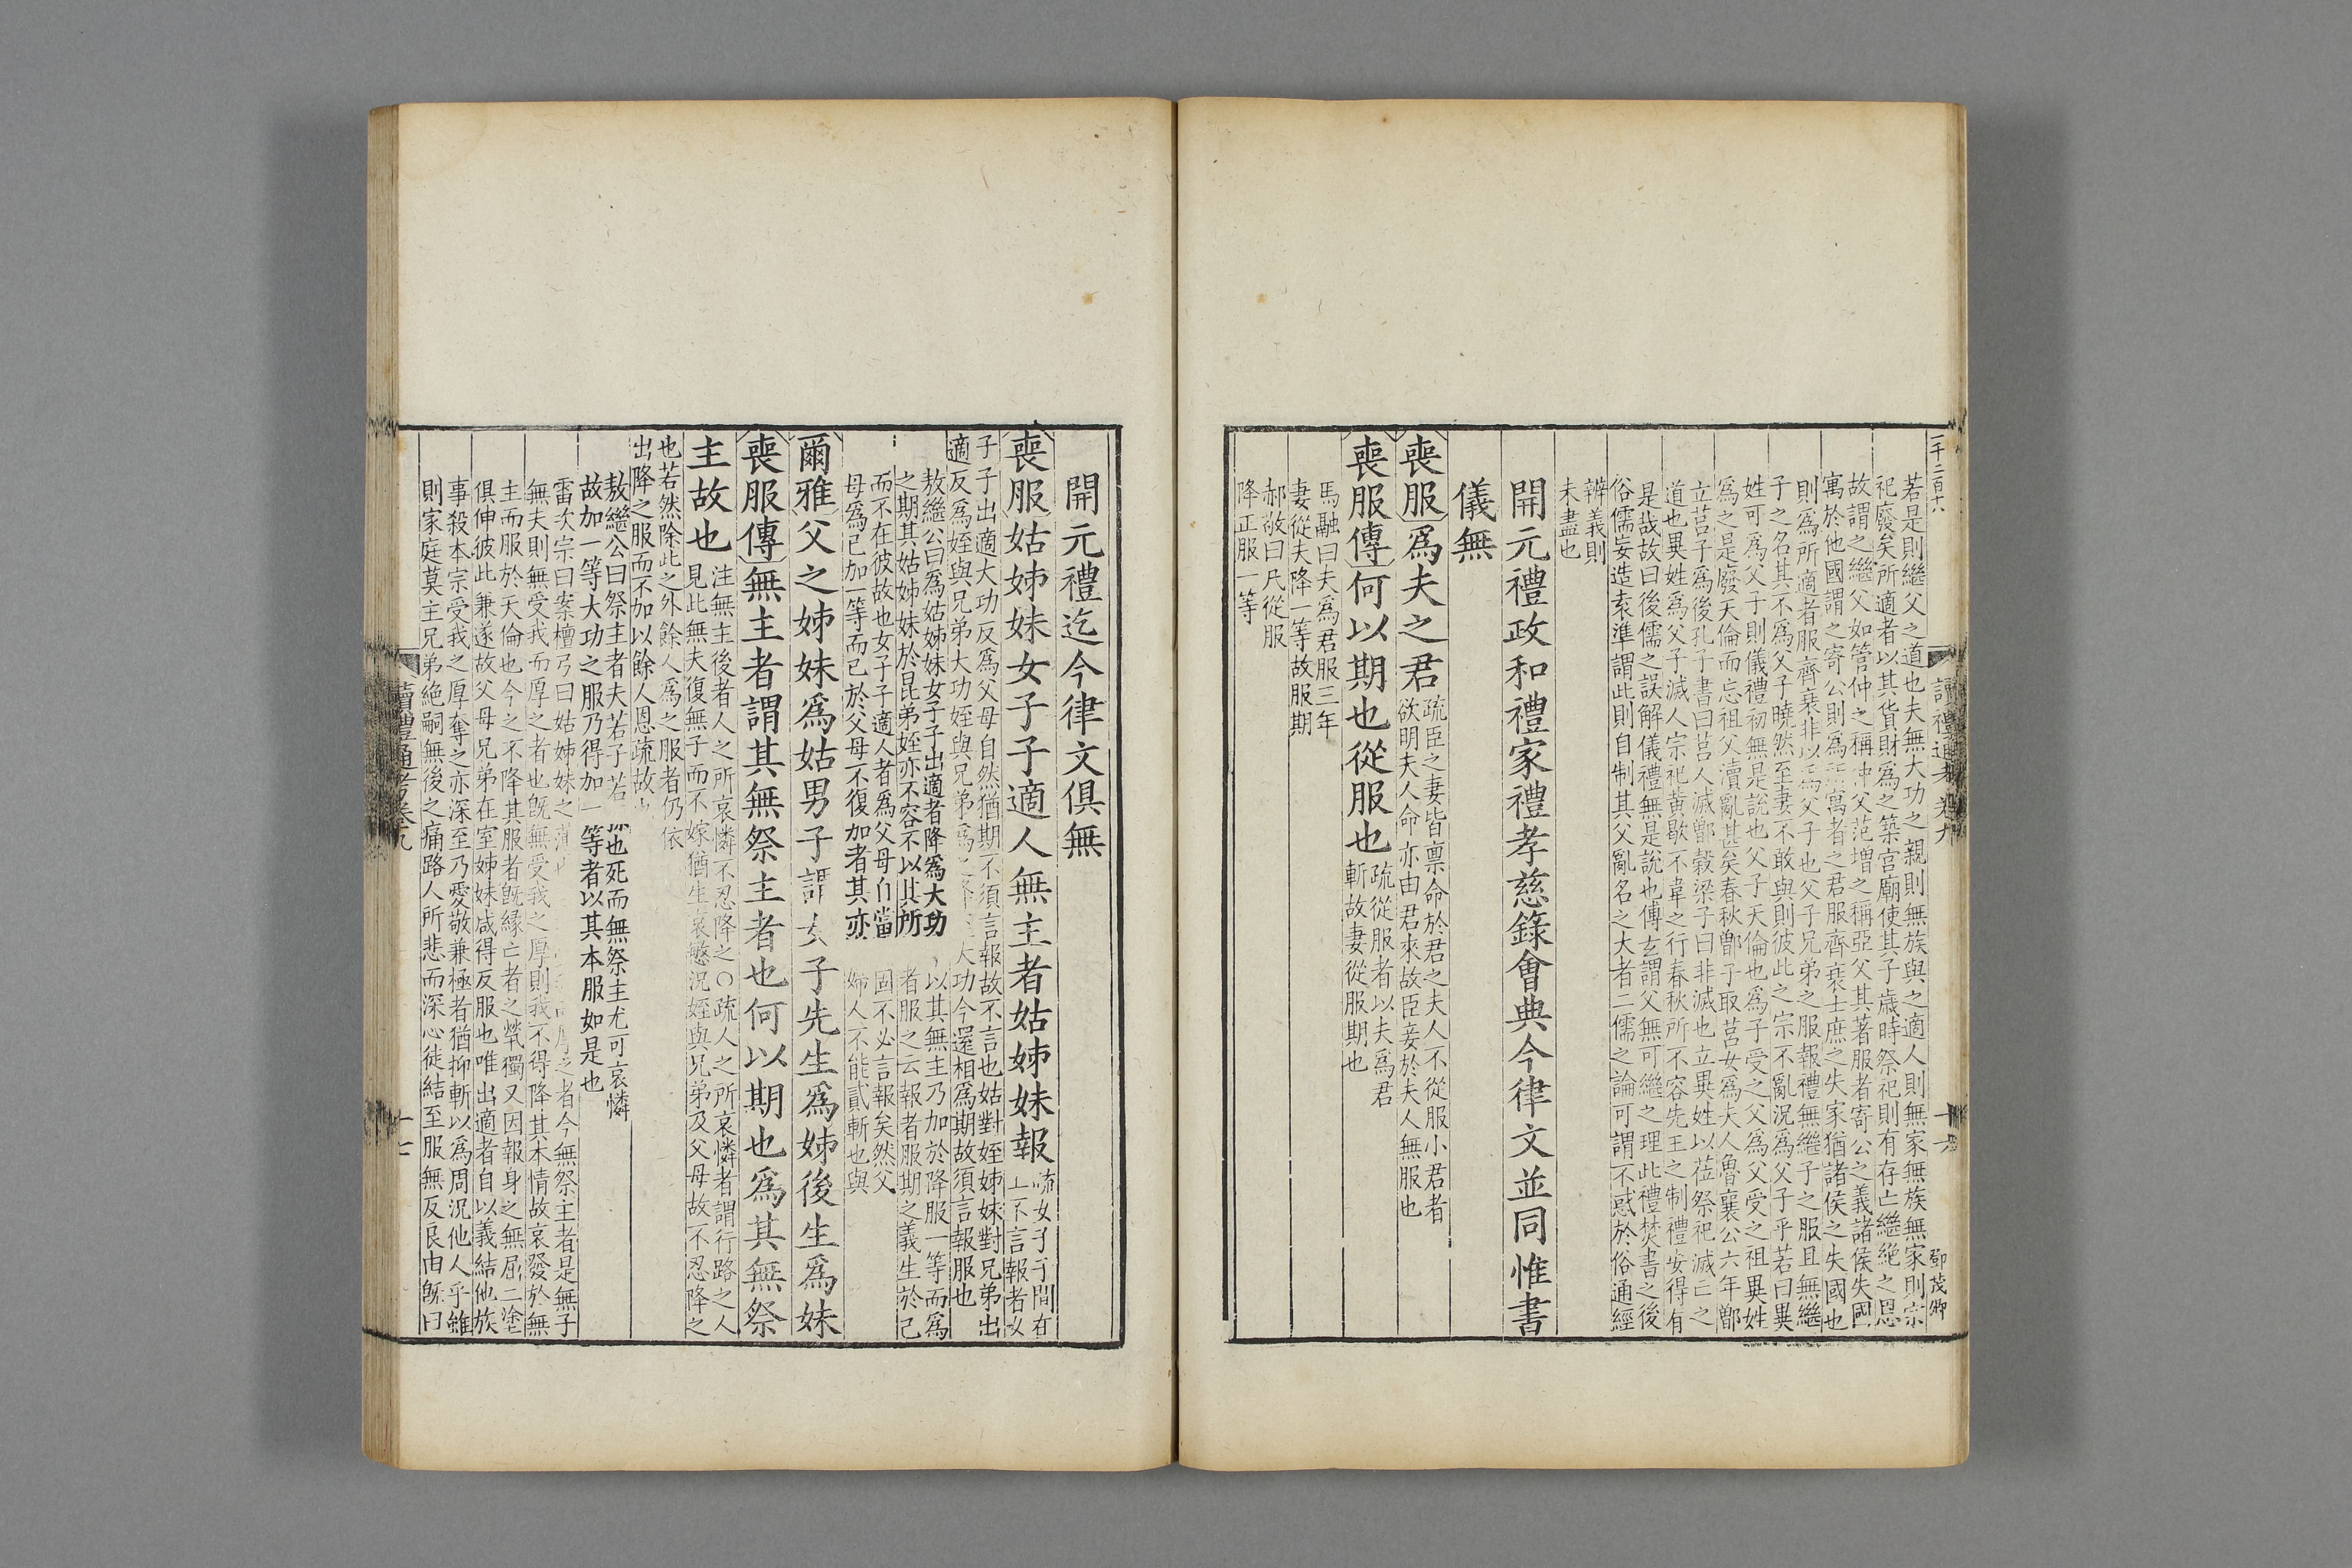 一千二百十八
讀禮通考卷九
十六
鄧茂卿
若是則繼父之道也夫無大功之親則無族與之適人則無家無族無家則宗
祀廢矣所適者以其貨財爲之築宮廟使其子歲時祭祀則有存亡繼絶之恩
故謂之繼父如管仲之稱仲父范增之稱亞父其著服者寄公之義諸侯失國
寓於他國謂之寄公則爲所寓者之君服齊衰士庶之失家猶諸侯之失國也
則爲所適者服齊衰非以爲父子也父子兄弟之服報禮無繼子之服且無繼
子之名其不爲父子曉然至妻不敢與則彼此之宗不亂況爲父子乎若曰異
姓可爲父子則儀禮初無是說也父子天倫也爲子受之父爲父受之祖異姓
爲之是廢天倫而忘祖父瀆亂甚矣春秋鄫子取莒女爲夫人魯襄公六年鄫
立莒子爲後孔子書曰莒人滅鄫穀梁子曰非滅也立異姓以莅祭祀滅亡之
道也異姓爲父子滅人宗祀黃歇不韋之行春秋所不容先王之制禮安得有
是哉故曰後儒之誤解儀禮無是說也傳玄謂父無可繼之理此禮焚書之後
俗儒妄造袁準謂此則自制其父亂名之大者二儒之論可謂不惑於俗通經
辨義則
未盡也
開元禮政和禮家禮孝慈錄會典今律文並同惟書
儀無
喪服爲夫之君
疏臣之妻皆禀命於君之夫人不從服小君者
欲明夫人命亦由君來故臣妾於夫人無服也
喪服傳何以期也從服也
疏從服者以夫爲君
斬故妻從服期也
馬融曰夫爲君服三年
妻從夫降一等故服期
郝敬曰凡從服
降正服一等
開元禮迄今律文俱無
喪服姑姊妹女子子適人無主者姑姊妹報
疏女子子間在
上不言報者以
子子出適大功反爲父母自然猶期不須言報故不言也姑對姪姊妹對兄弟出
適反爲姪與兄弟大功姪與兄弟爲之降至大功今還相爲期故須言報服也
敖繼公曰爲姑姊妹女子子出適者降爲大功以其無主乃加於降服一等而爲
之期其姑姊妹於昆弟姪亦不容不以其所者服之云報者服期之義生於己
而不在彼故也女子子適人者爲父母自當固不必言報矣然父
母爲己加一等而已於父母不復加者其亦婦人不能貳斬也與
爾雅父之姊妹爲姑男子謂女子先生爲姊後生爲妹
喪服傳無主者謂其無祭主者也何以期也爲其無祭
主故也
注無主後者人之所哀憐不忍降之○疏人之所哀憐者謂行路之人
見此無夫復無子而不嫁猶生哀愍況姪與兄弟及父母故不忍降之
也若然除此之外餘人爲之服者仍依
出降之服而不加以餘人恩疏故也
敖繼公曰祭主者夫若子若孫也死而無祭主尤可哀憐
故加一等大功之服乃得加一等者以其本服如是也
雷次宗曰案檀弓曰姑姊妹之薄也厚之者今無祭主者是無子
無夫則無受我而厚之者也旣無受我之厚則我不得降其本情故哀發於無
主而服於天倫也今之不降其服者旣緣亡者之煢獨又因報身之無屈二塗
俱伸彼此兼遂故父母兄弟在室姊妹咸得反服也唯出適者自以義結他族
事殺本宗受我之厚奪之亦深至乃愛敬兼極者猶抑斬以爲周況他人乎雖
則家庭莫主兄弟絶嗣無後之痛路人所悲而深心徒結至服無反良由旣曰
讀禮通考卷九
十七